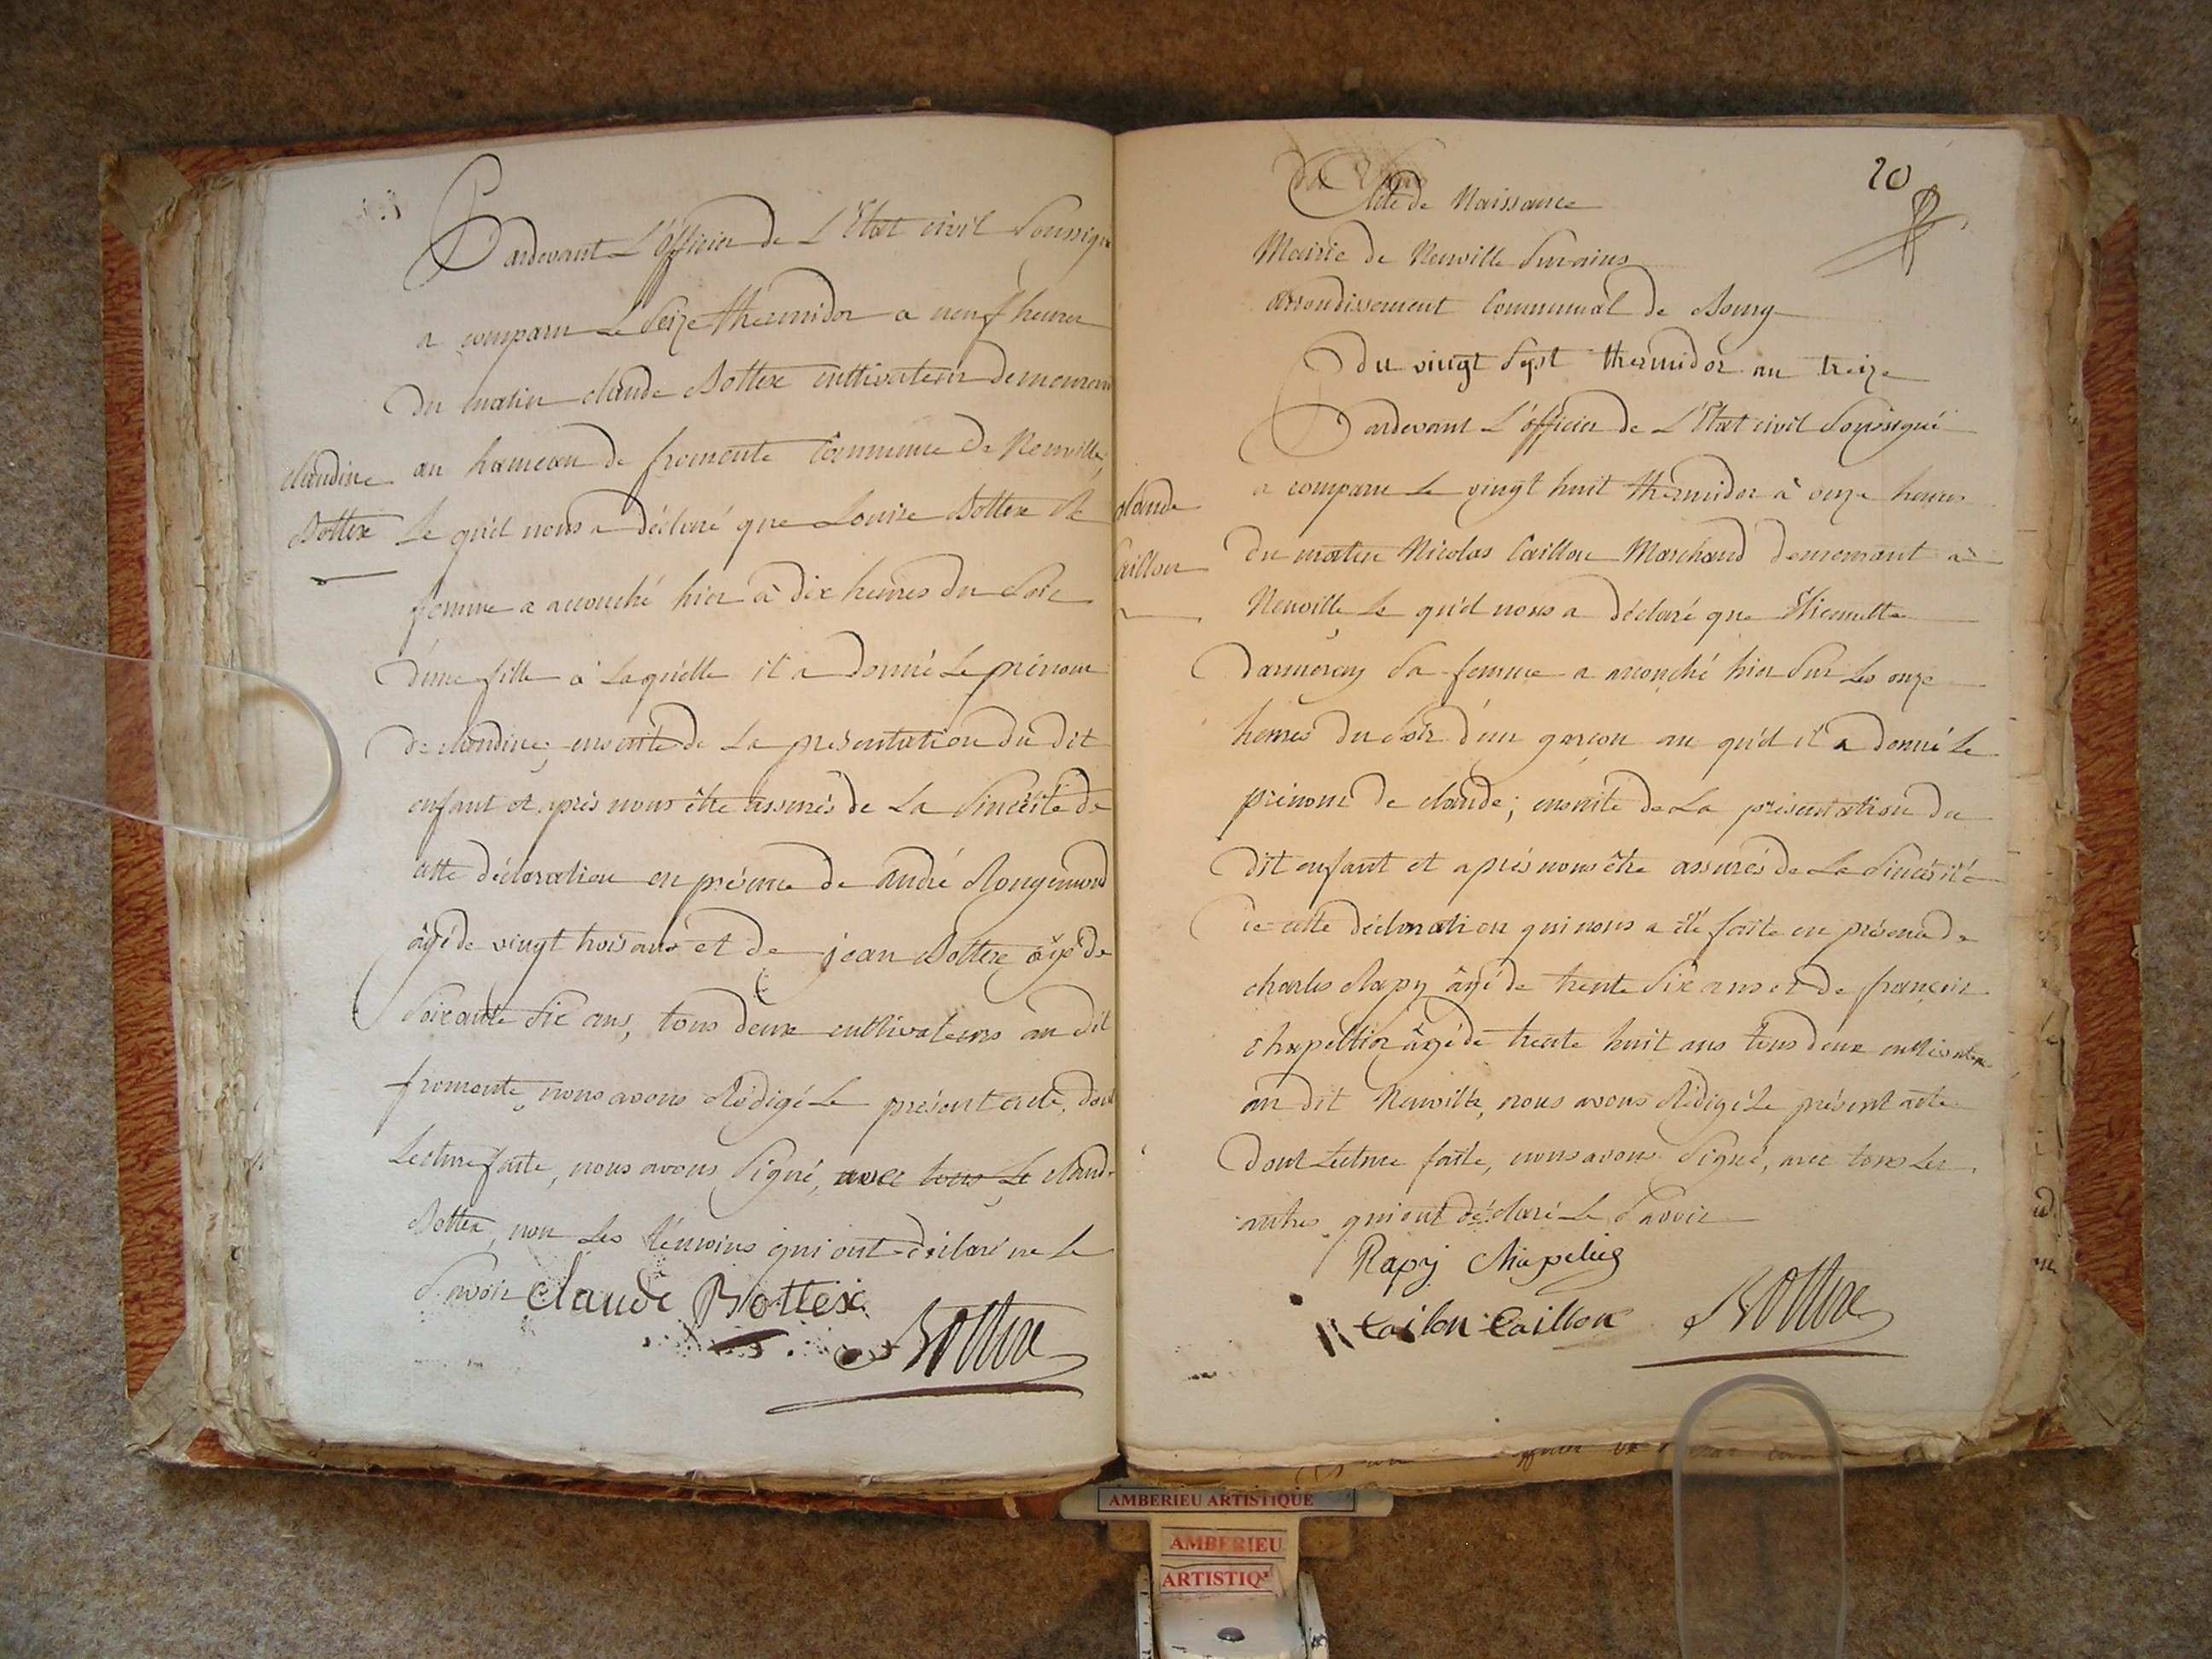 Pardevant L'officier de L'Etat civil Soussigné
a comparu Le Seize thermidor a neuf heures
du matin claude Bottex cultivateur demeurant
au hameau de fromente Commune de Neuville,
Le quel nous a déclaré que Louise Bottex Sa
femme a accouché hier à dix heures du Soir
d'une fille à Laquelle it a donné Le prénom
de claudine; ensuite de La présentation du dit
enfant et après nous être assurés de La Sincérité de
cette déclaration en présence de André Rougemond
âgé de vingt trois ans et de jean Bottex âgé de
Soixante Six ans, tous deux cultivateurs au dit
fromente, nous avons Rédigé Le présent acte, dont
Lecture faite, nous avons Signé, avec tous Le claude
Bottex, non Les témoins qui ont déclaré ne Le
Savoir
claude Bottex
Bottex
claudine
Bottex
20
Acte de Naissance
Mairie de Neuville Surains
arrondissement Communal de Bourg
Du vingt Sept thermidor an treize
Pardevant L'officier de L'Etat civil Soussigné
a comparu Le vingt huit thermidor à onze heures
du matin Nicolas Caillon Marchand demeurant à
Neuville Le quel nous a déclaré que Thiennette
Sa femme a accouché hier Sur Les onze
heures du Soir d'un garçon au quel it a donné Le
prénom de claude; ensuite de La présentation du
dit enfant et après nous être assurés de La Sincérité
de cette déclaration qui nous a été faite en présence de
charles Rapy âgé de trente Six ans et de françois
Chapellier âgé de trente huit ans tous deux cultivateurs
au dit Neuville, nous avons Rédigé Le présent acte
dont Lecture faite, nous avons Signé, avec tous Les
autres qui ont déclaré Le Savoir
Rapy Chapelier
Caillon Bottex
claude
Caillon
AMBERIEU ARTISTIQUE
AMBERIEU
ARTISTIQ